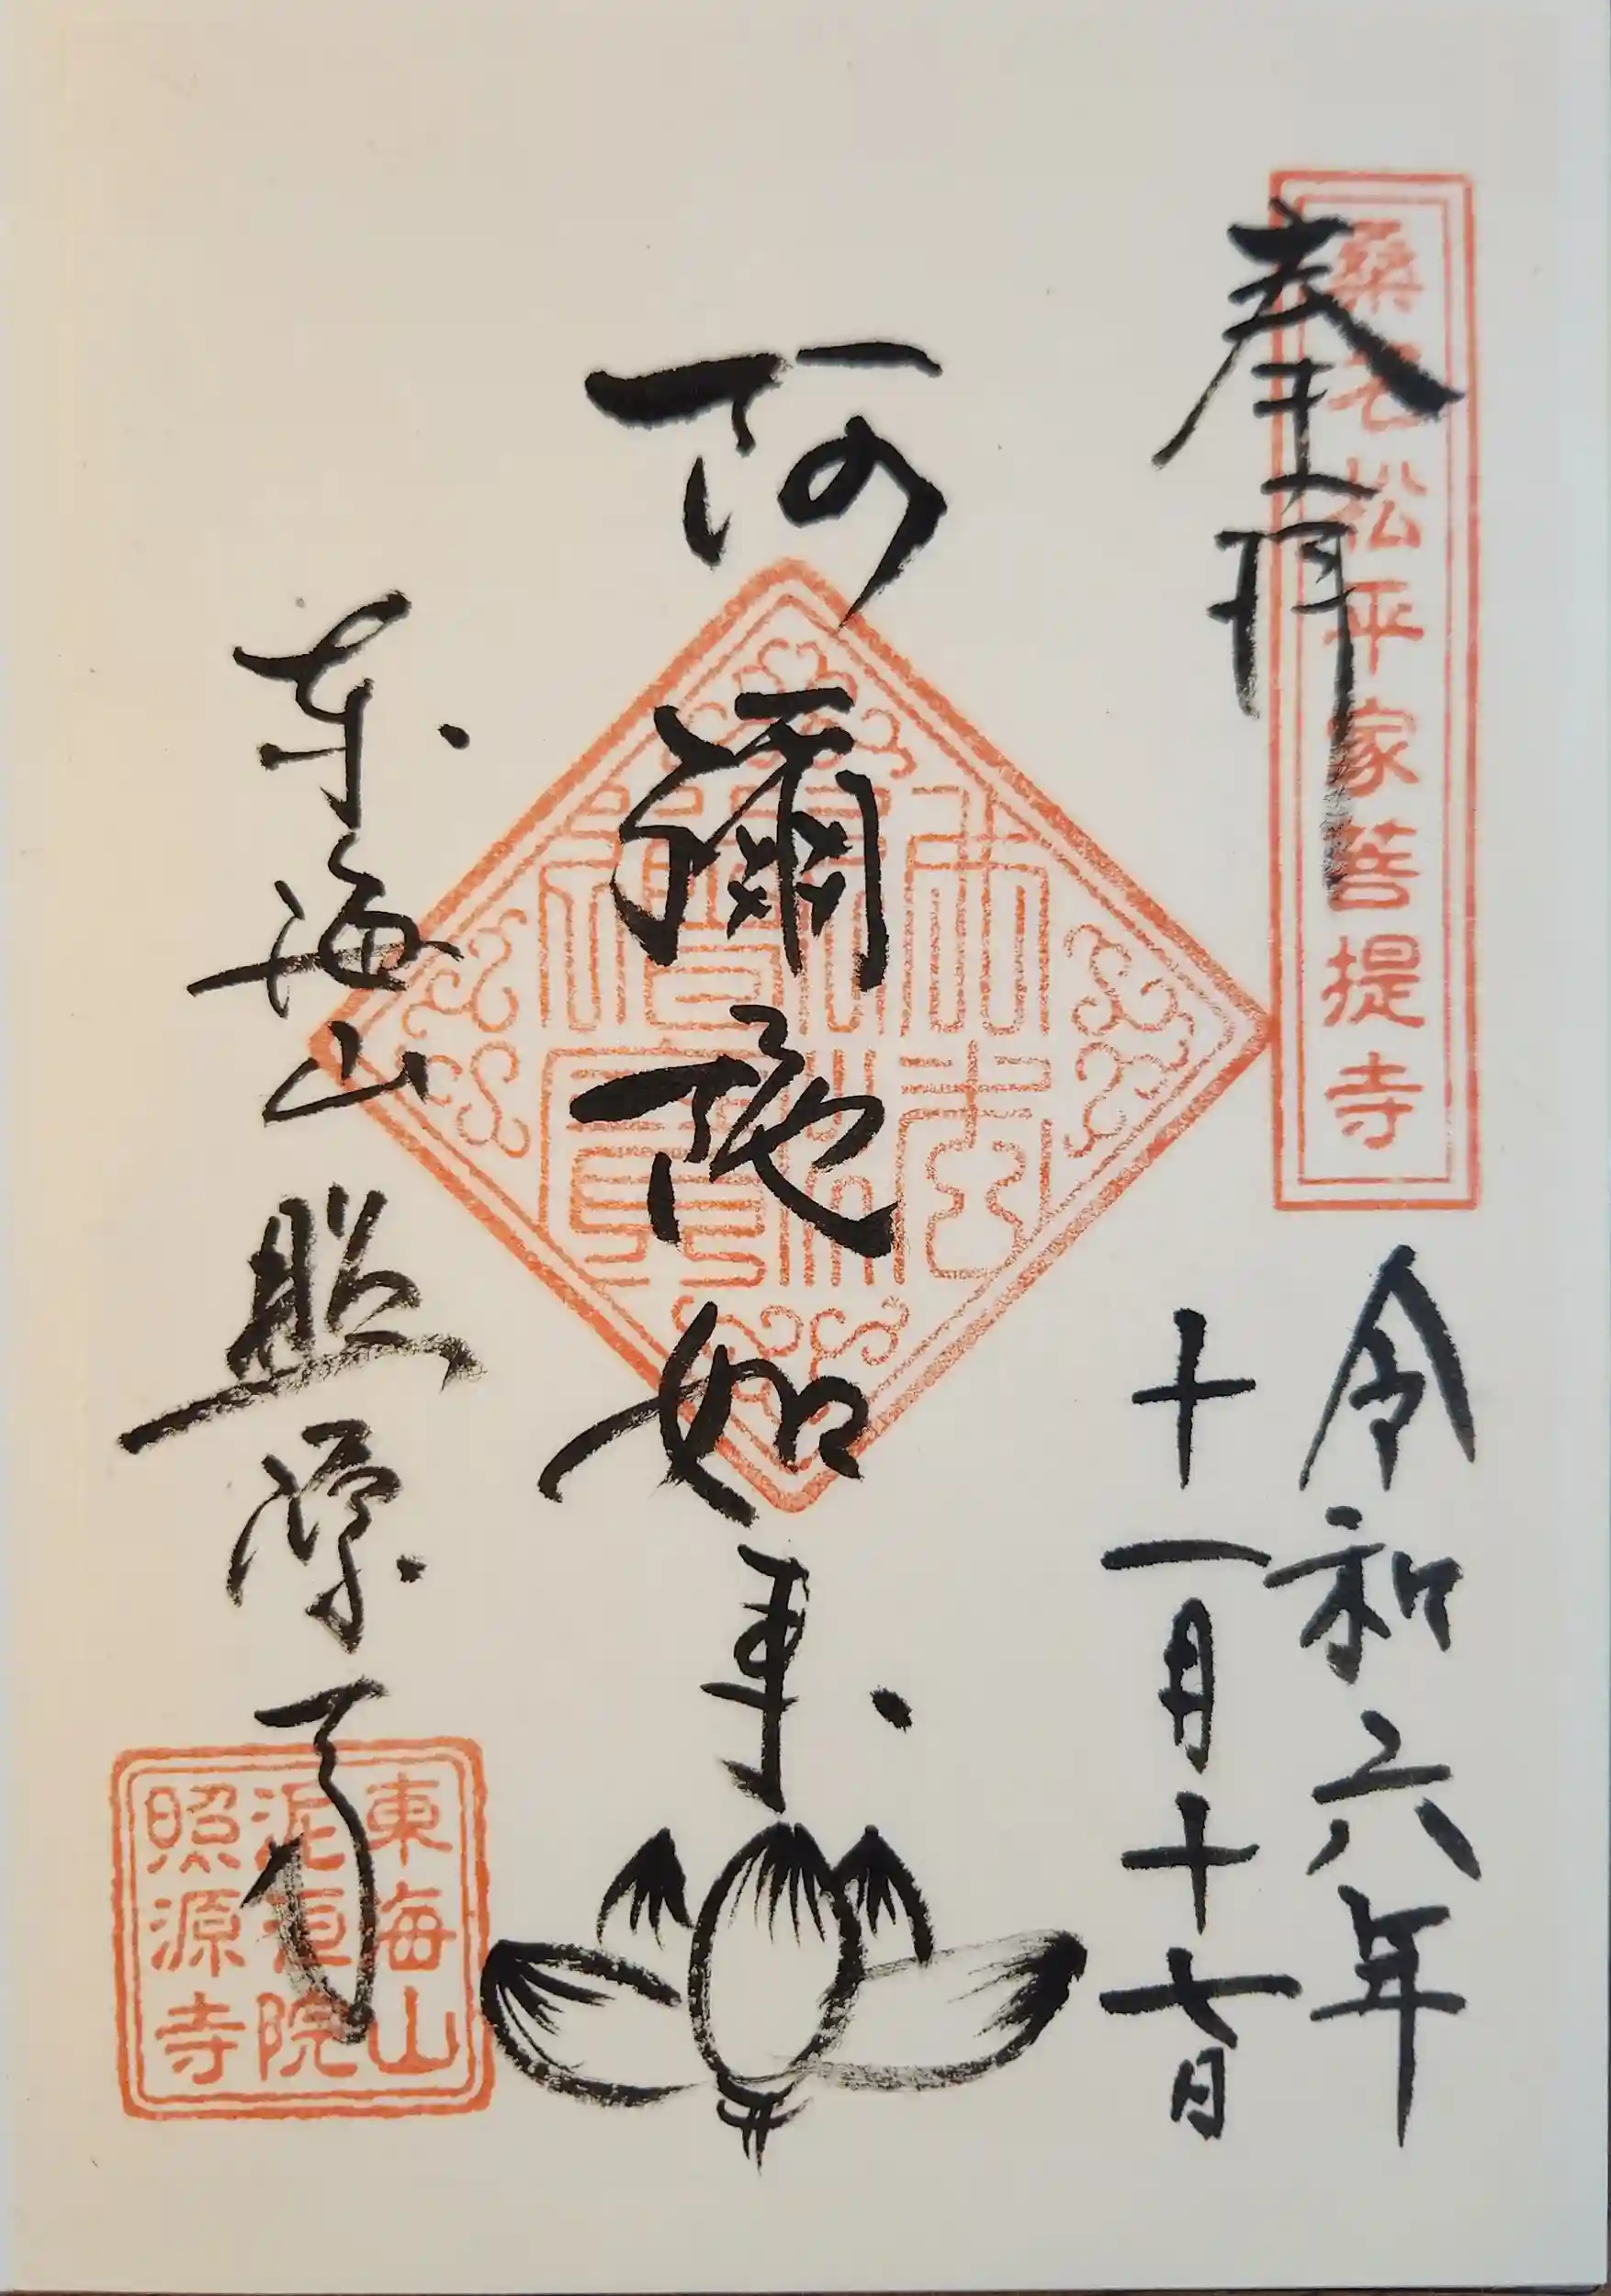 奉拝
桑名松平家菩提寺
令和六年
十一月十七日
阿彌陀如来
佛法僧寶
東海山照源寺
東海山
泥洹院
照源寺